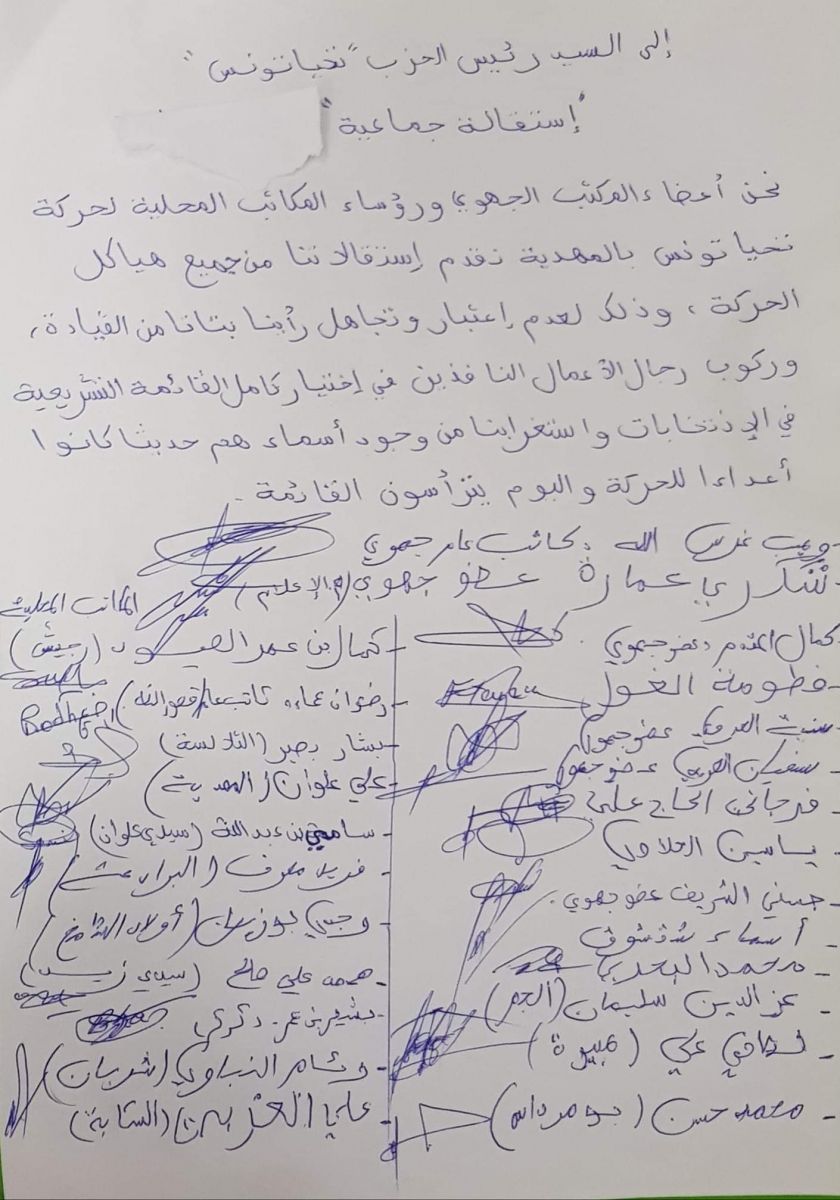 إلى السيد رئيس الحزب "تحيا تونس"
"إستقالة جماعية"
نحن أعضاء المكتب الجهوي ورؤساء المكاتب المحلية لحركة
تحيا تونس بالمهدية نقدم إستقالاتنا من جميع هياكل
الحركة، وذلك لعدم إعتبار وتجاهل رأينا بتاتا من القيادة،
وركوب رجال الأعمال النافذين في إختيار كامل القائمة التشريعية
في الإنتخابات واستغرابنا من وجود أسماء هم حديثا كانوا
أعداءا للحركة واليوم يترأسون القائمة.
غرس الله كاتب عام جهوي
شكري عمارة عضو جهوي (الإعلام)
كمال عضو جهوي
- فطومة الغول
عضو جهوي
سفيان عضو جهوي
- فرجاني الحاج علي
- ياسين العلاوي
- حسني الشريف عضو جهوي.
- أسماء شقشوق
- محمد البحري
- عز الدين سليمان (الجم)
- علي (هبيرة)
- محمد حسن (بومرداس)
المكاتب المحلية
- كمال بن عمر (رجيش)
- رضوان كاتب عام (قصور الساف)
- بشار (التلالسة)
- علي علوان (المهدية)
- سامي بن عبد الله (سيدي علوان)
- فريد (البرادعة)
- (أولاد الشامخ)
- علي صالح (سيدي زيد)
- بشير بن عمر. كركر
- وئام (شربان)
- علي (الشابة)